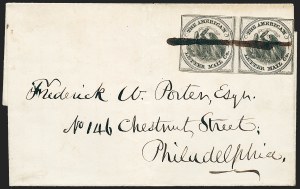 THE AMERICAN THE AMERICAN
LETTER MAIL CO. LETTER MAIL CO.
Frederick W. Porter, Esqr.
No 146 Chestnut Street,
Philadelphia.